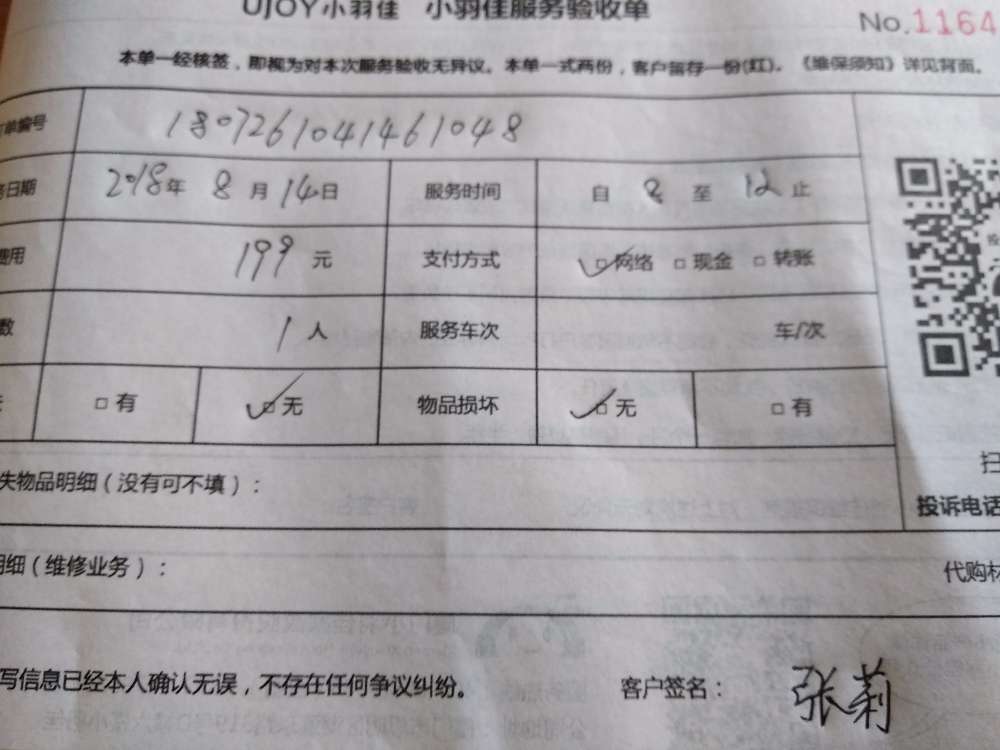 UJOY小羽佳 小羽佳服务验收单
No.1164
本单一经核签，即视为对本次服务验收无异议。本单一式两份，客户留存一份(红)。《维保须知》详见背面。
单编号 1807261041461048
务日期 2018年 8月14日 服务时间 自 8 至 12 止
费用 199 元 支付方式 ☑网络 □现金 □转账
数 1 人 服务车次 车/次
□有 ☑无 物品损坏 ☑无 □有
失物品明细（没有可不填）：
扫
投诉电话
明细（维修业务）：
代购材
写信息已经本人确认无误，不存在任何争议纠纷。 客户签名：张莉